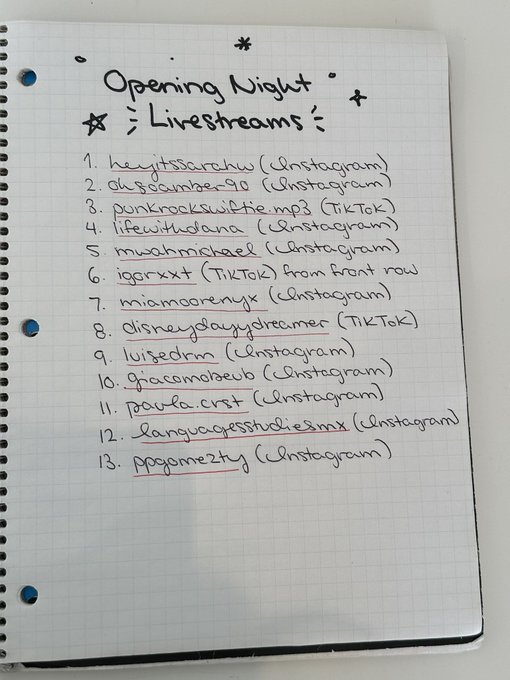 Opening Night
Livestreams
1. heyitssarahw (Instagram)
2. ohsoamber90 (Instagram)
3. punkrockswiftie.mp3 (TikTok)
4. lifewithdana (Instagram)
5. mwahmichael (Instagram)
6. igorxxt (TikTok) from front row
7. miamoorenyx (Instagram)
8. disneydayydreamer (TikTok)
9. luisedrm (Instagram)
10. giacomobeub (Instagram)
11. paula.crst (Instagram)
12. languagesstudiesmx (Instagram)
13. ppgomezty (Instagram)